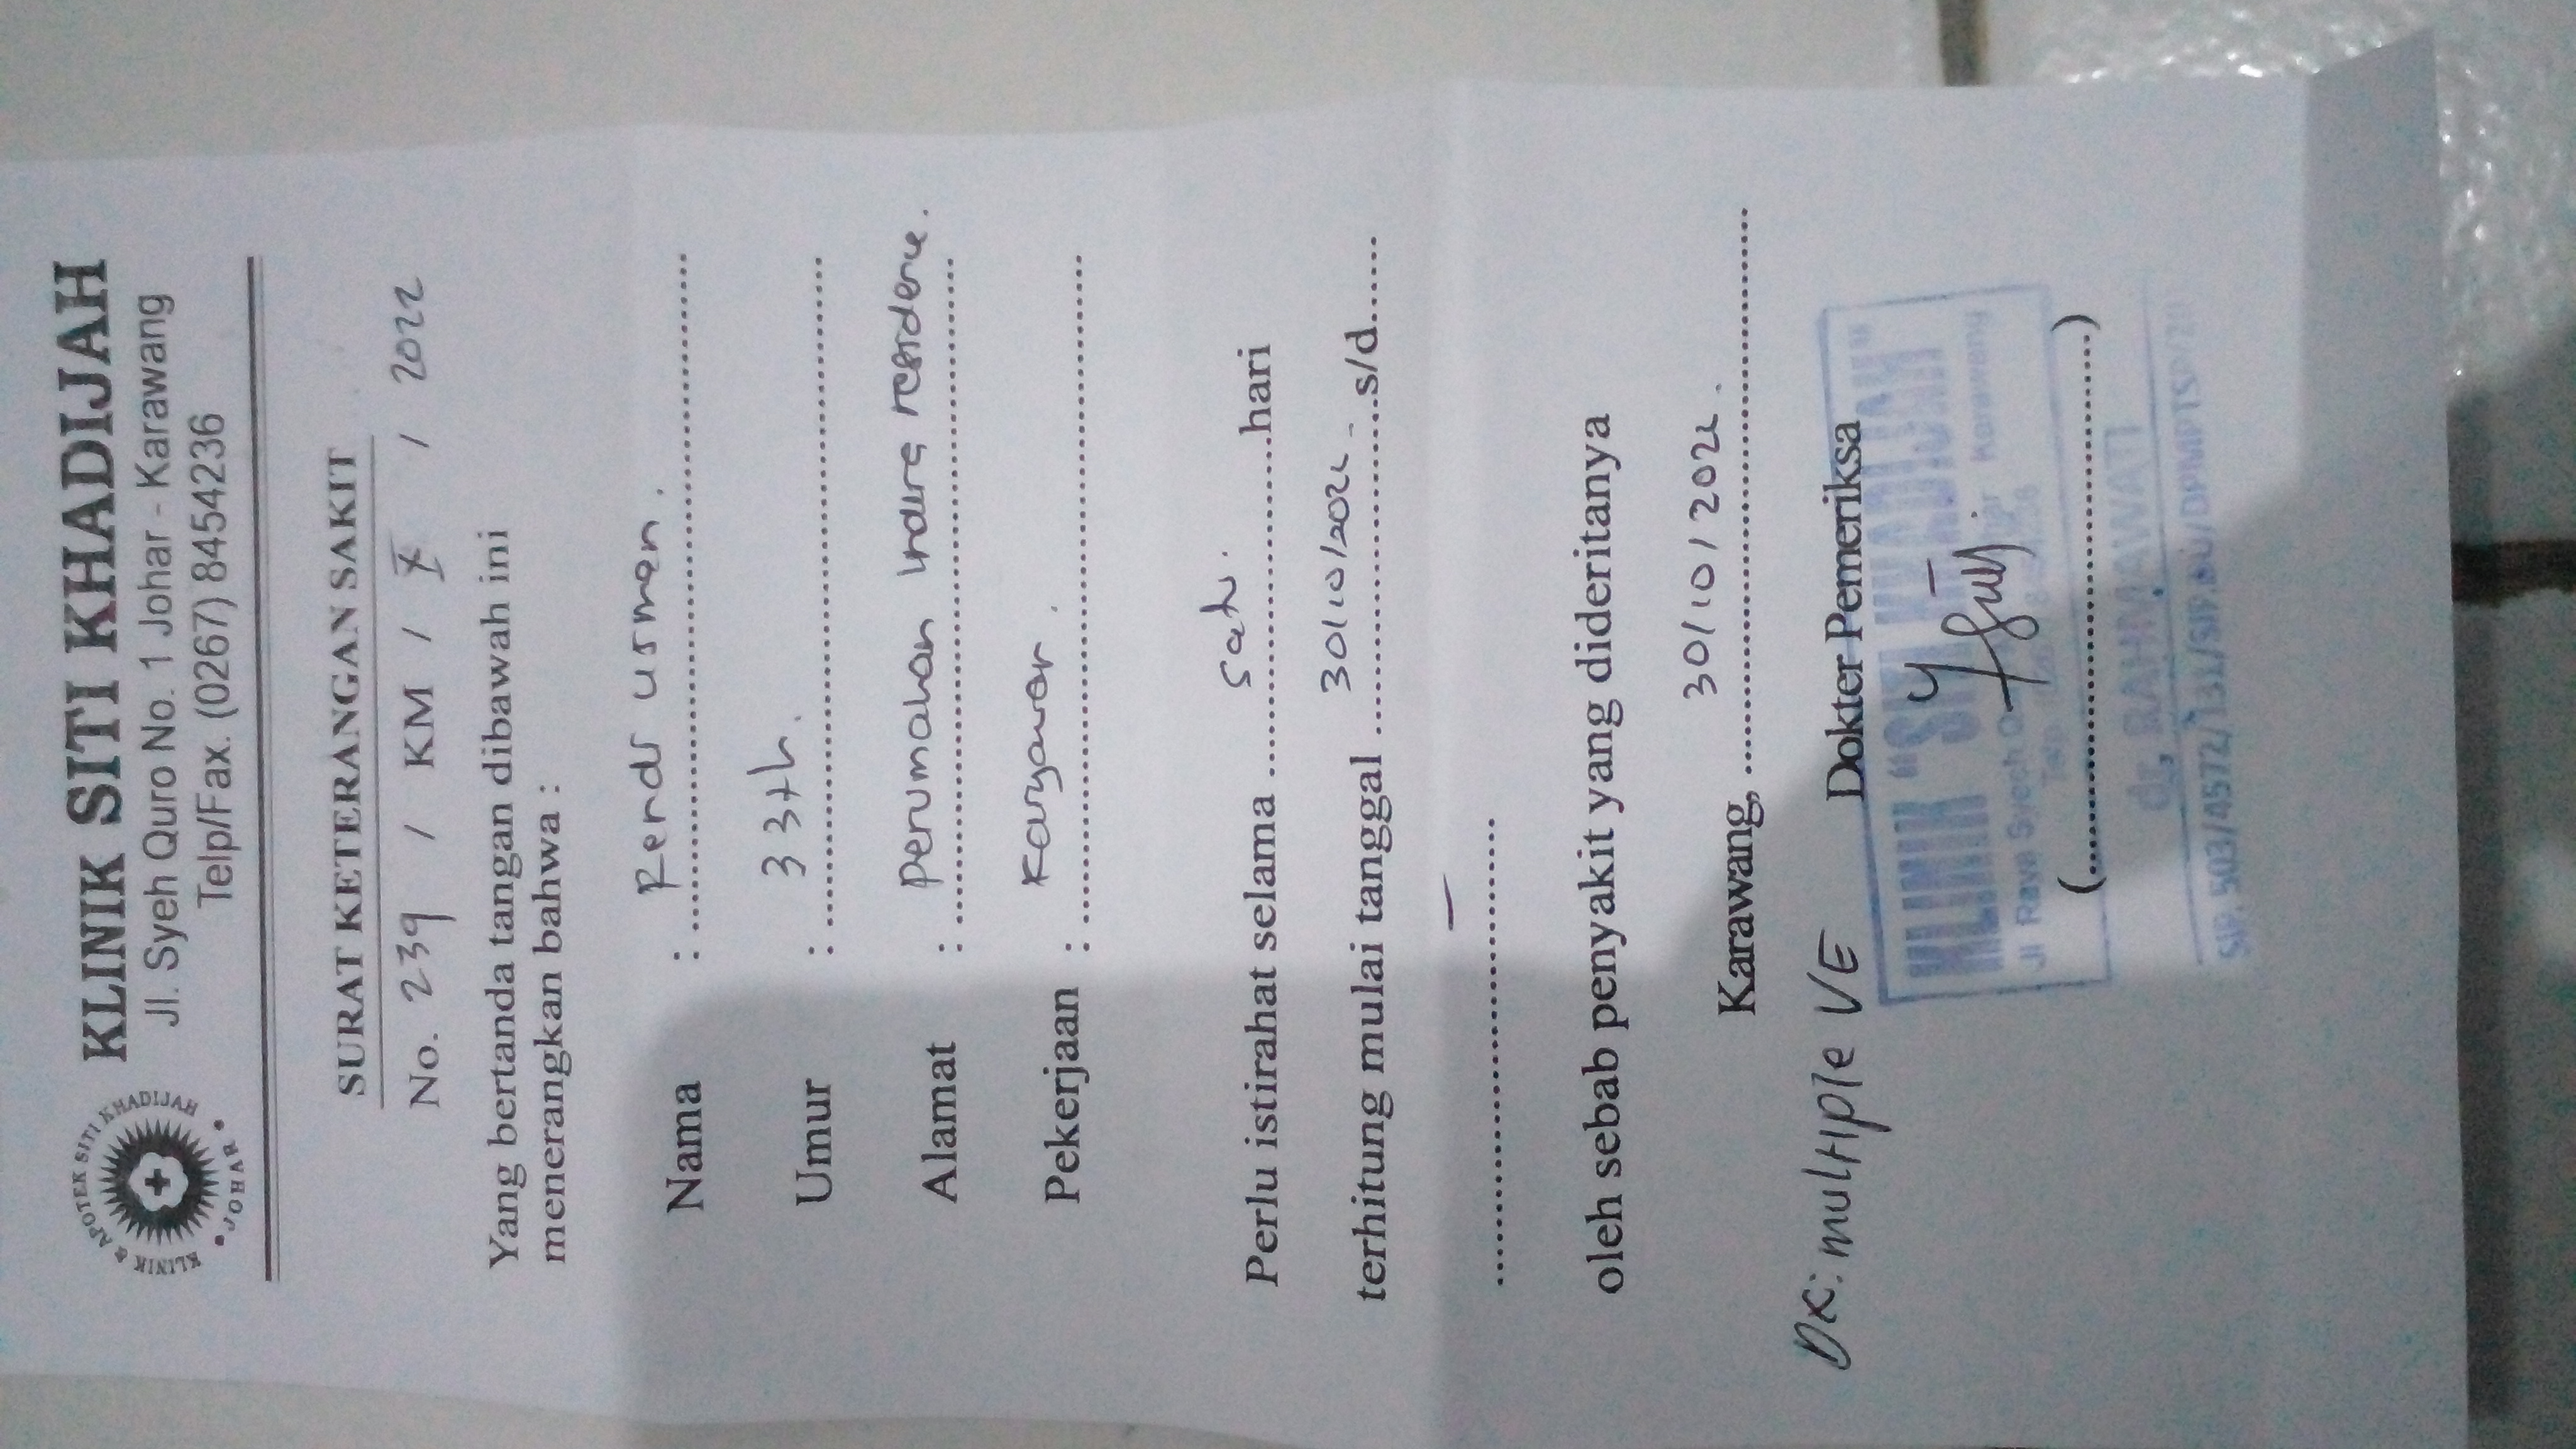 KLINIK & APOTEK SITI KHADIJAH
JOHAR
KLINIK SITI KHADIJAH
Jl. Syeh Quro No. 1 Johar - Karawang
Telp/Fax. (0267) 8454236
SURAT KETERANGAN SAKIT
No. 239 / KM / X / 2022
Yang bertanda tangan dibawah ini
menerangkan bahwa :
Nama : Rendi usman.
Umur : 33th.
Alamat : perumahan indira residence.
Pekerjaan : karyawan.
Perlu istirahat selama satu. hari
terhitung mulai tanggal 30/10/2022 - s/d......
—
oleh sebab penyakit yang dideritanya
Karawang, 30/10/2022.
DX: multiple VE
Dokter Pemeriksa
KLINIK "SITI KHADIJAH"
Jl Raya Syech Karawang
(........................................)
dr, RAHMAWATI
SIP. 503/4572/131/SIP.DU/DPMPTSP/20